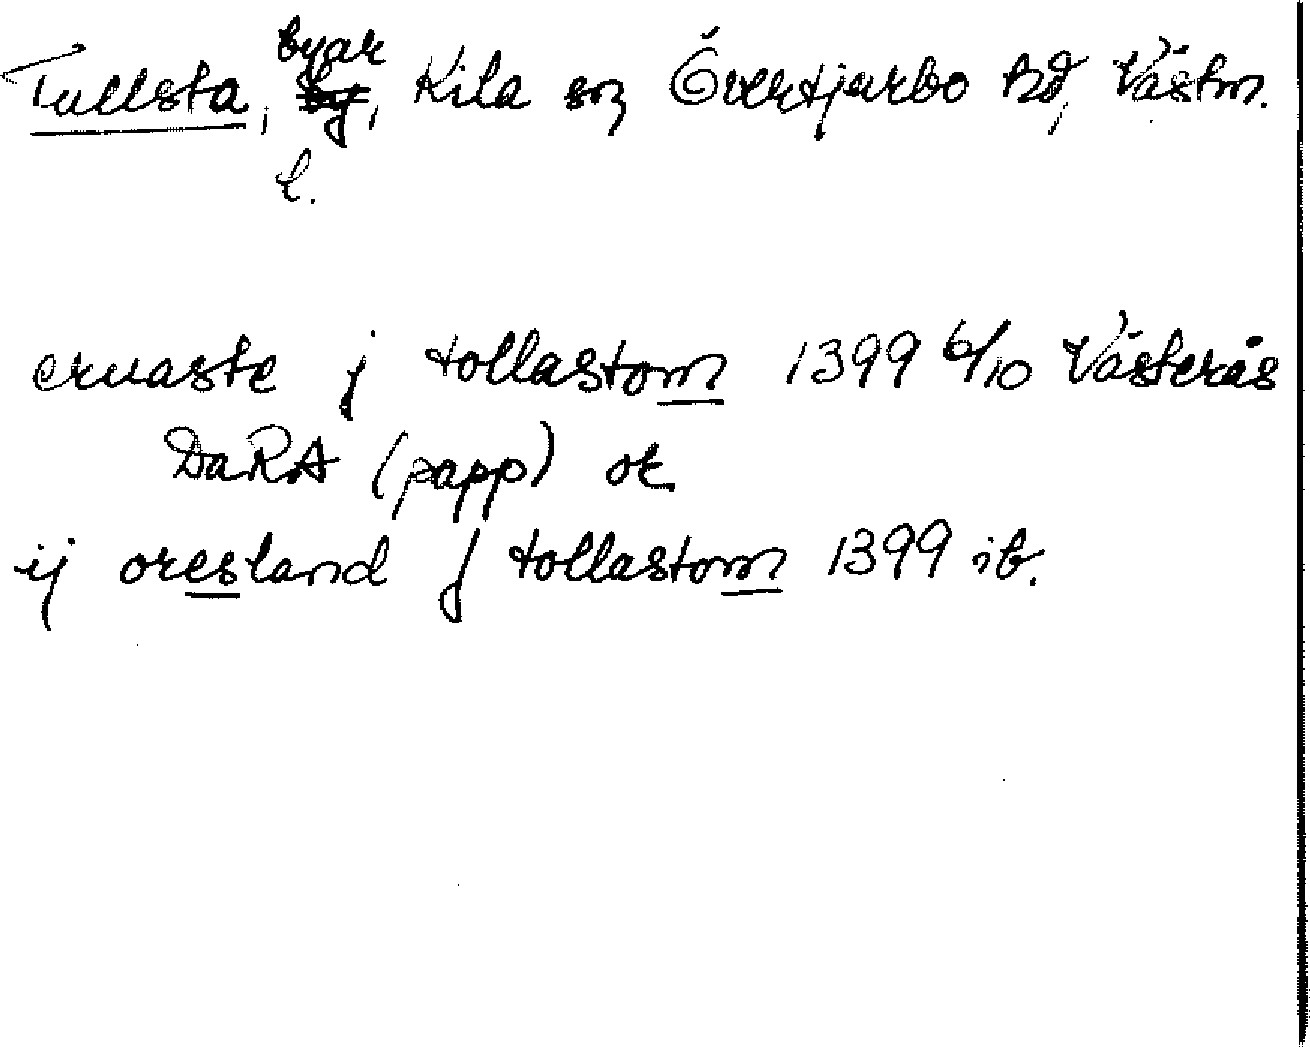 Tullsta, byar, Kila sn, Övertjurbo hd, Västm.
l.
ervaste j tollastom 1399 6/10 Västerås
DaRA (papp) ok
ij oresland j tollastom 1399 ib.